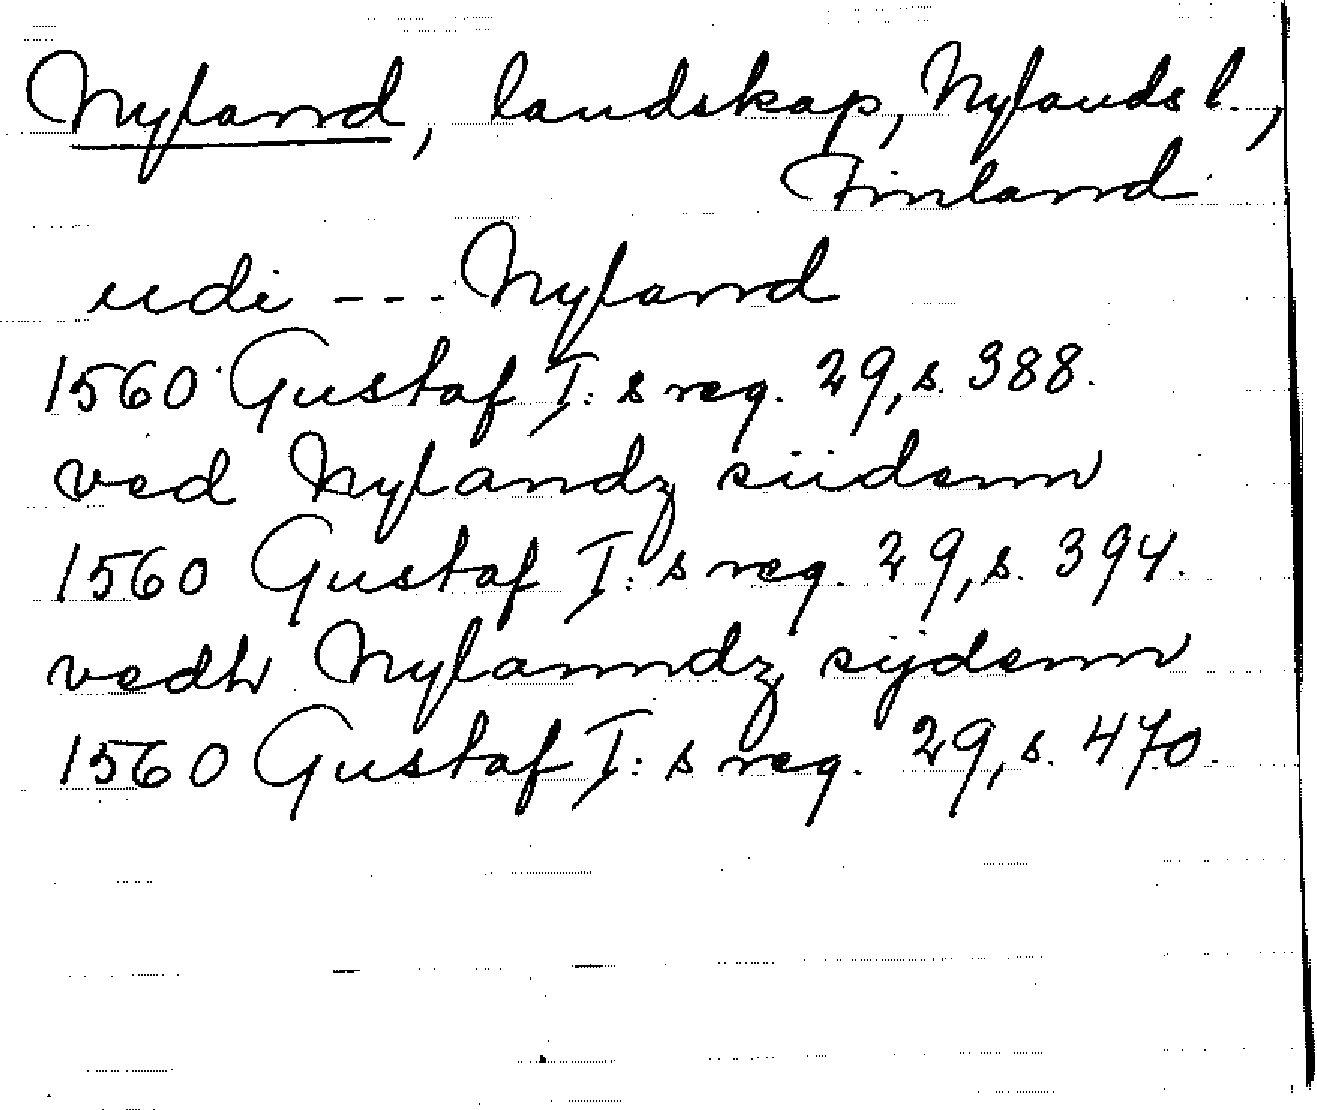 Nyland, landskap, Nylands l.,
Finland
udi --- Nyland
1560 Gustaf I:s reg. 29, s. 388.
ved Nylandz siidenn
1560 Gustaf I:s reg. 29, s. 394.
vedh Nylanndz sijdenn
1560 Gustaf I:s reg. 29, s. 470.